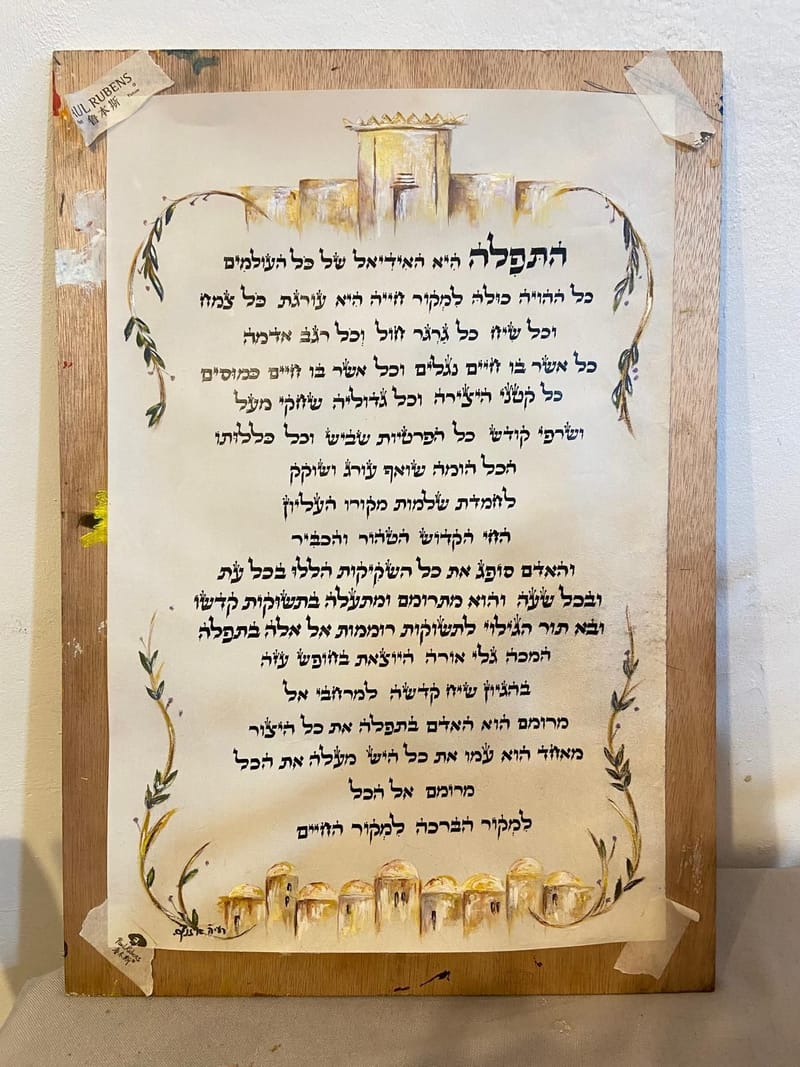 PAUL RUBENS
鲁本斯
התפלה היא האידיאל של כל העולמים
כל ההויה כולה למקור חייה היא עורגת כל צמח
וכל שיח כל גרגר חול וכל רגב אדמה
כל אשר בו חיים נגלים וכל אשר בו חיים כמוסים
כל קטני היצירה וכל גדוליה שחקי מעל
ושרפי קודש כל הפרטיות שביש וכל כללותו
הכל הומה שואף עורג ושוקק
לחמדת שלמות מקורו העליון
החי הקדוש הטהור והכביר
והאדם סופג את כל השקיקות הללו בכל עת
ובכל שעה והוא מתרומם ומתעלה בתשוקות קדשו
ובא תור הגילוי לתשוקות רוממות אל אלה בתפלה
המכה גלי אורה היוצאת בחופש עזה
בהגיון שיח קדשה למרחבי אל
מרומם הוא האדם בתפלה את כל היצור
מאחד הוא עמו את כל היש מעלה את הכל
מרומם אל הכל
למקור הברכה למקור החיים